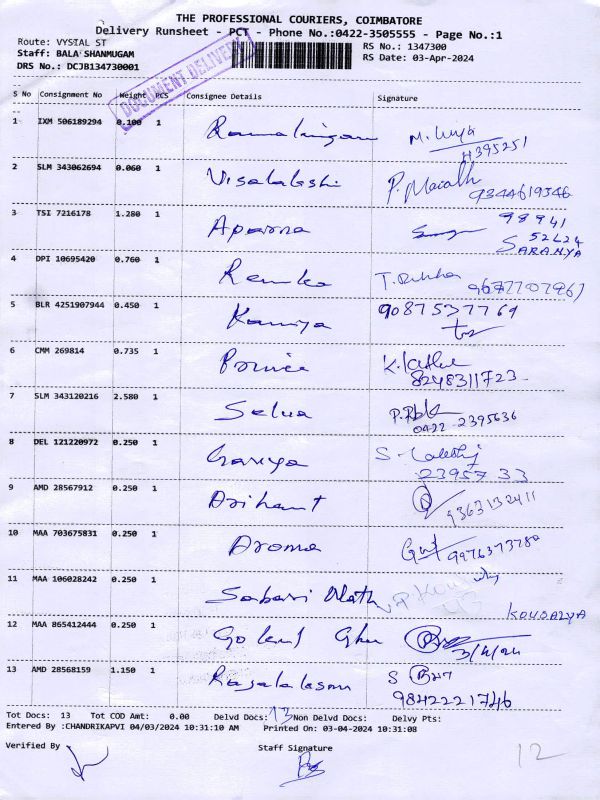 THE PROFESSIONAL COURIERS, COIMBATORE
Delivery Runsheet - PCT - Phone No.:0422-3505555 - Page No.:1
Route: VYSIAL ST
RS No.: 1347300
Staff: BALA SHANMUGAM
RS Date: 03-Apr-2024
DRS No.: DCJB134730001
DOCUMENT DELIVERY
S No Consignment No Weight PCS Consignee Details Signature
1 IXM 506189294 0.100 1
4395251
2 SLM 343062694 0.060 1 Visalakshi
9344619346
3 TSI 7216178 1.280 1 Aparna 98941
52624
SARANYA
4 DPI 10695420 0.760 1 Renuka
5 BLR 4251907944 0.450 1 9087537769
6 CMM 269814 0.735 1 Prince
8248311723
7 SLM 343120216 2.580 1 Selva
0422-2395636
8 DEL 121220972 0.250 1
2395733
9 AMD 28567912 0.250 1 Arihant 9363132411
10 MAA 703675831 0.250 1 Aroma 9976373780
11 MAA 106028242 0.250 1 Sabari Nath
KOUSALYA
12 MAA 865412444 0.250 1
3/4/24
13 AMD 28568159 1.150 1
9842221746
Tot Docs: 13 Tot COD Amt: 0.00 Delvd Docs: 13 Non Delvd Docs: Delvy Pts:
Entered By :CHANDRIKAPVI 04/03/2024 10:31:10 AM Printed On: 03-04-2024 10:31:08
Verified By Staff Signature
12